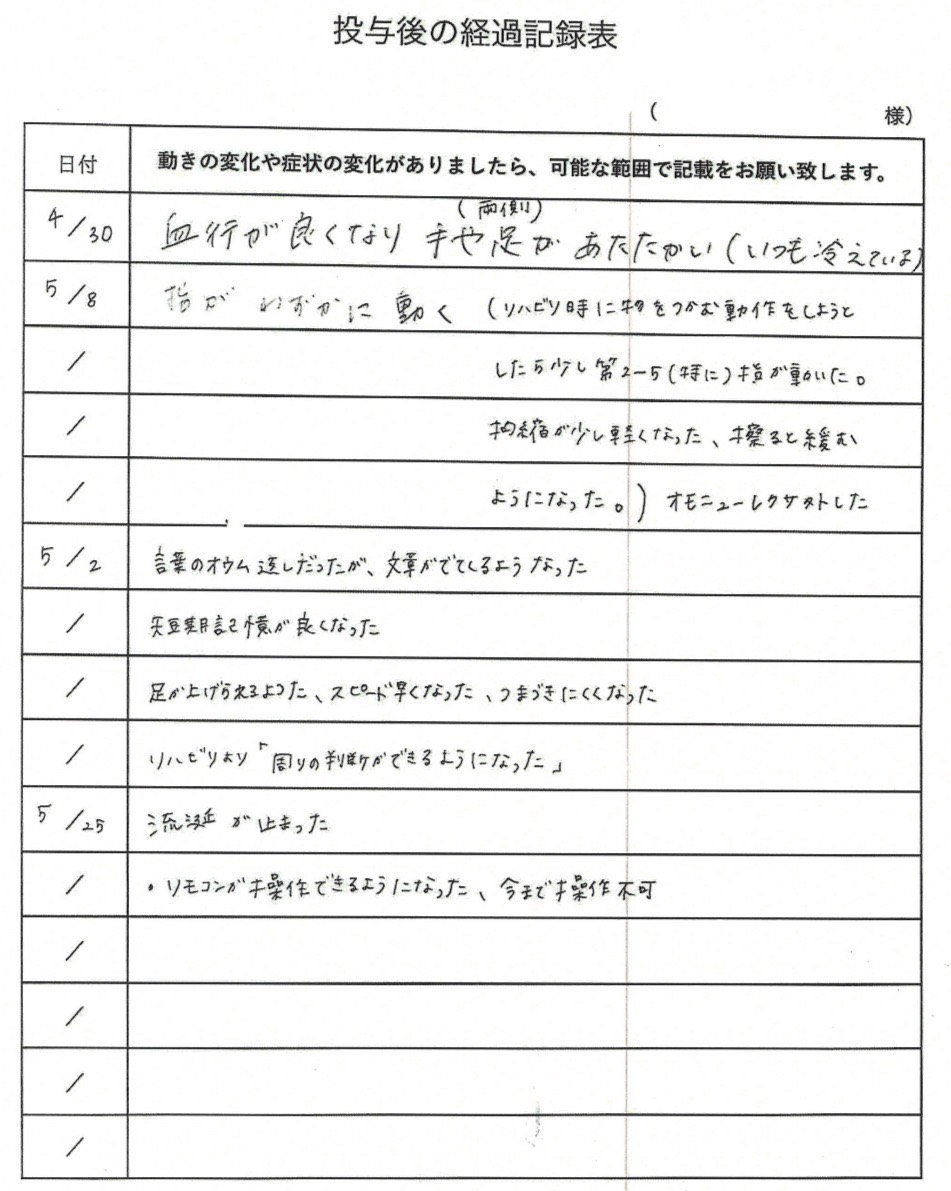 投与後の経過記録表
( 様)
日付 動きの変化や症状の変化がありましたら、可能な範囲で記載をお願い致します。
(両側)
4/30 血行が良くなり 手や足が あたたかい (いつも冷えている)
5/8 指が わずかに 動く (リハビリ時に物をつかむ動作をしようと
/ したら少し第2-5(特に)指が動いた。
/ 拘縮が少し軽くなった、擦ると緩む
/ ようになった。)
5/2 言葉のオウム返しだったが、文章がでてくるようなった
/ 短期記憶が良くなった
/ 足が上げられるよった、スピード早くなった、つまづきにくくなった
/ リハビリより「周りの判断ができるようになった」
5/25 流涎が止まった
/ ・リモコンが操作できるようになった、今まで操作不可
/
/
/
/